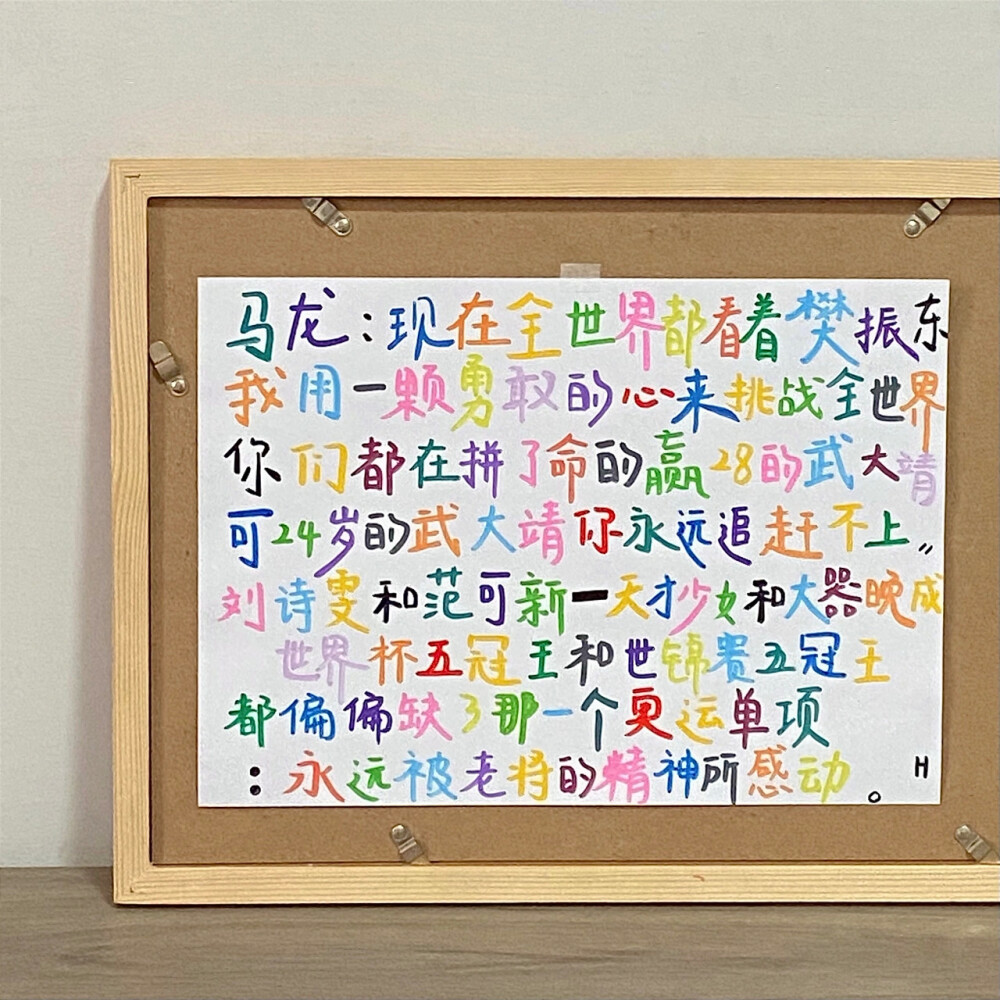 马龙:现在全世界都看着樊振东
我用一颗勇敢的心来挑战全世界
你们都在拼了命的赢28的武大靖
可24岁的武大靖你永远追赶不上”
刘诗雯和范可新一天才少女和大器晚成
世界杯五冠王和世锦赛五冠王
都偏偏缺了那一个奥运单项
:永远被老将的精神所感动。H